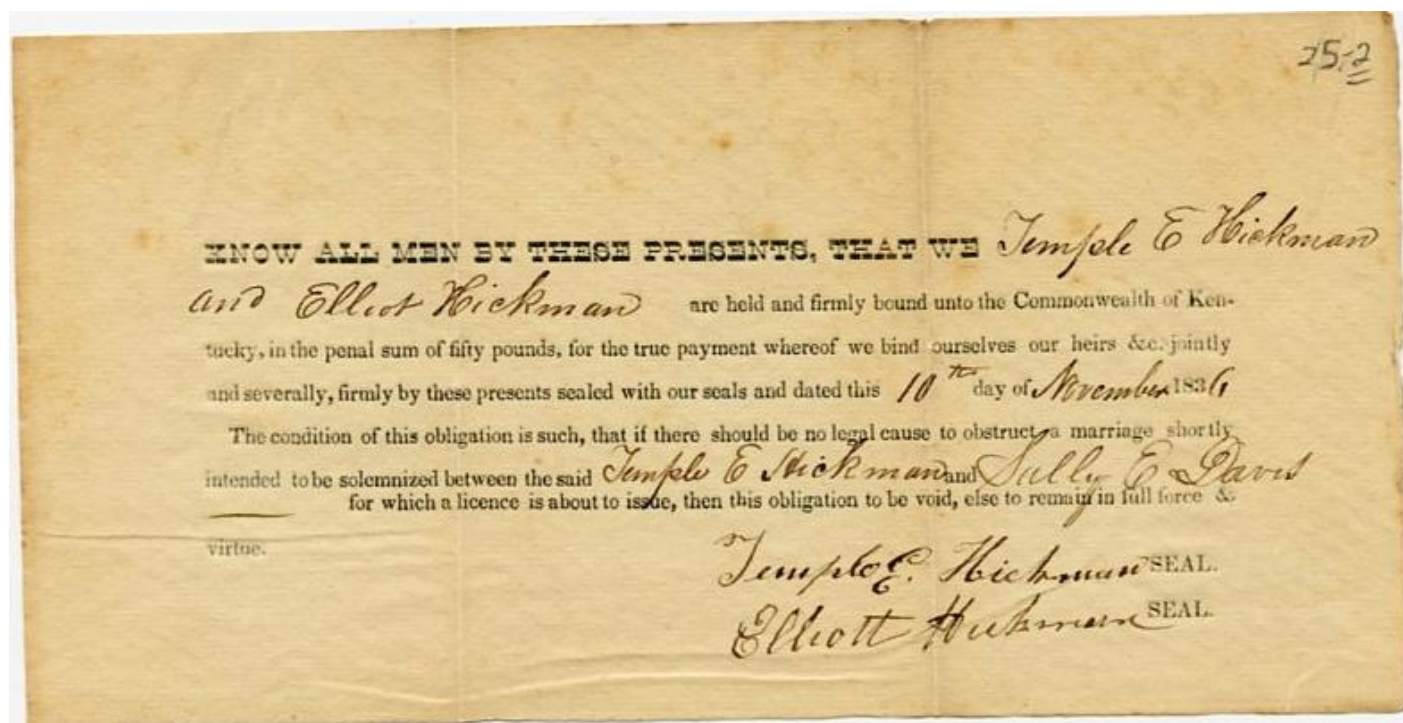 25-2
KNOW ALL MEN BY THESE PRESENTS, THAT WE Temple E Hickman
and Elliot Hickman are held and firmly bound unto the Commonwealth of Ken-
tucky, in the penal sum of fifty pounds, for the true payment whereof we bind ourselves our heirs &c. jointly
and severally, firmly by these presents sealed with our seals and dated this 10th day of November 1836
The condition of this obligation is such, that if there should be no legal cause to obstruct a marriage shortly
intended to be solemnized between the said Temple E Hickman and Sally E Davis
for which a licence is about to issue, then this obligation to be void, else to remain in full force &
virtue.
Temple E. Hickman SEAL.
Elliott Hickman SEAL.